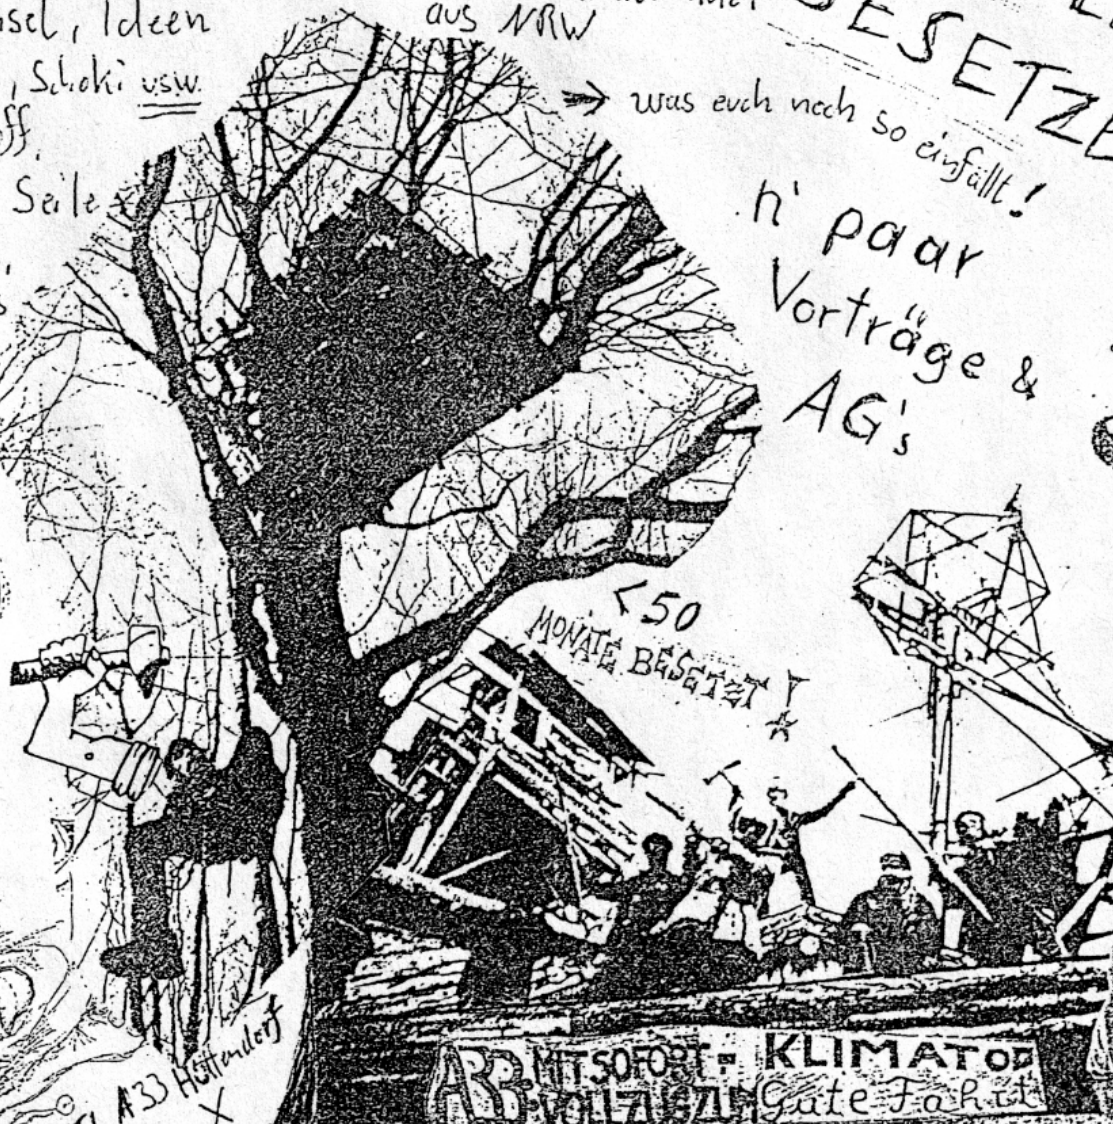 Ideen
, Schoki usw.
Seile
aus NRW
→ was euch noch so einfällt!
n' paar
Vorträge &
AG's
< 50
MONATE BESETZT!
A33 Hüttendorf
X
MIT SOFORT-
KLIMATOD
Gute Fahrt